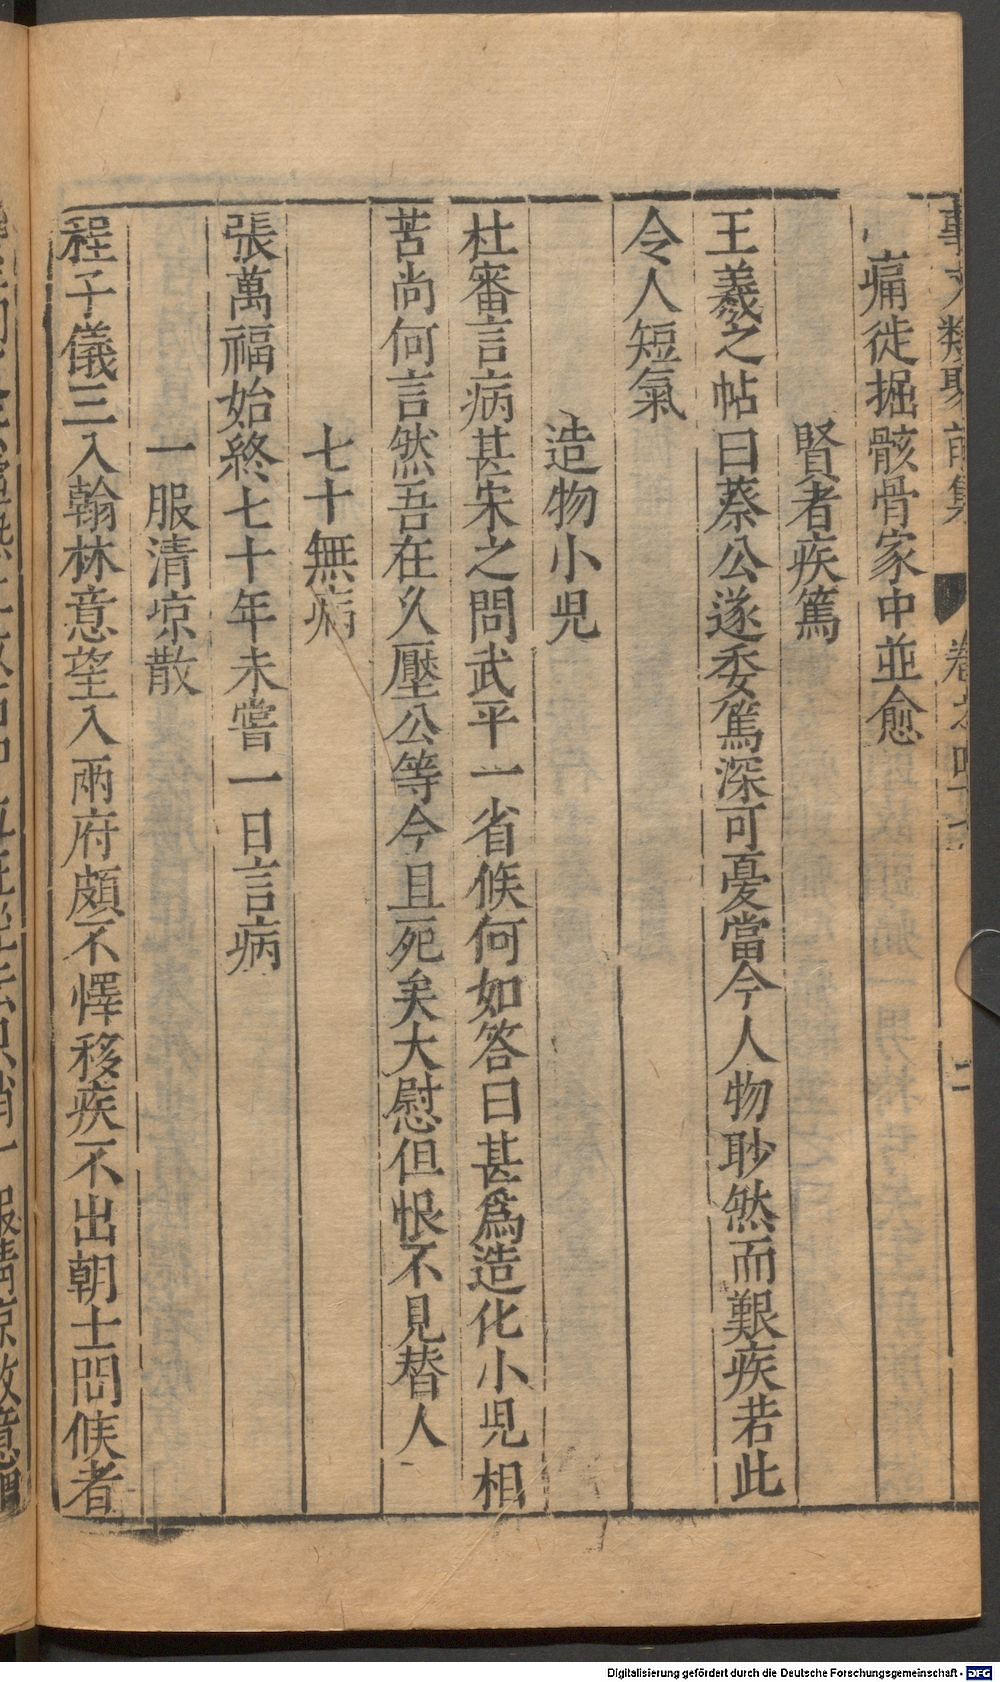 事文類聚前集
卷之四十六
二
痛徙掘骸骨家中並愈
賢者疾篤
王羲之帖曰蔡公遂委篤深可憂當今人物眇然而艱疾若此
令人短氣
造物小兒
杜審言病甚宋之問武平一省候何如答曰甚爲造化小兒相
苦尚何言然吾在久壓公等今且死矣大慰但恨不見替人
七十無病
張萬福始終七十年未嘗一日言病
一服清凉散
程子儀三入翰林意望入兩府頗不懌移疾不出朝士問候者
服清凉散意
Digitalisierung gefördert durch die Deutsche Forschungsgemeinschaft - DFG